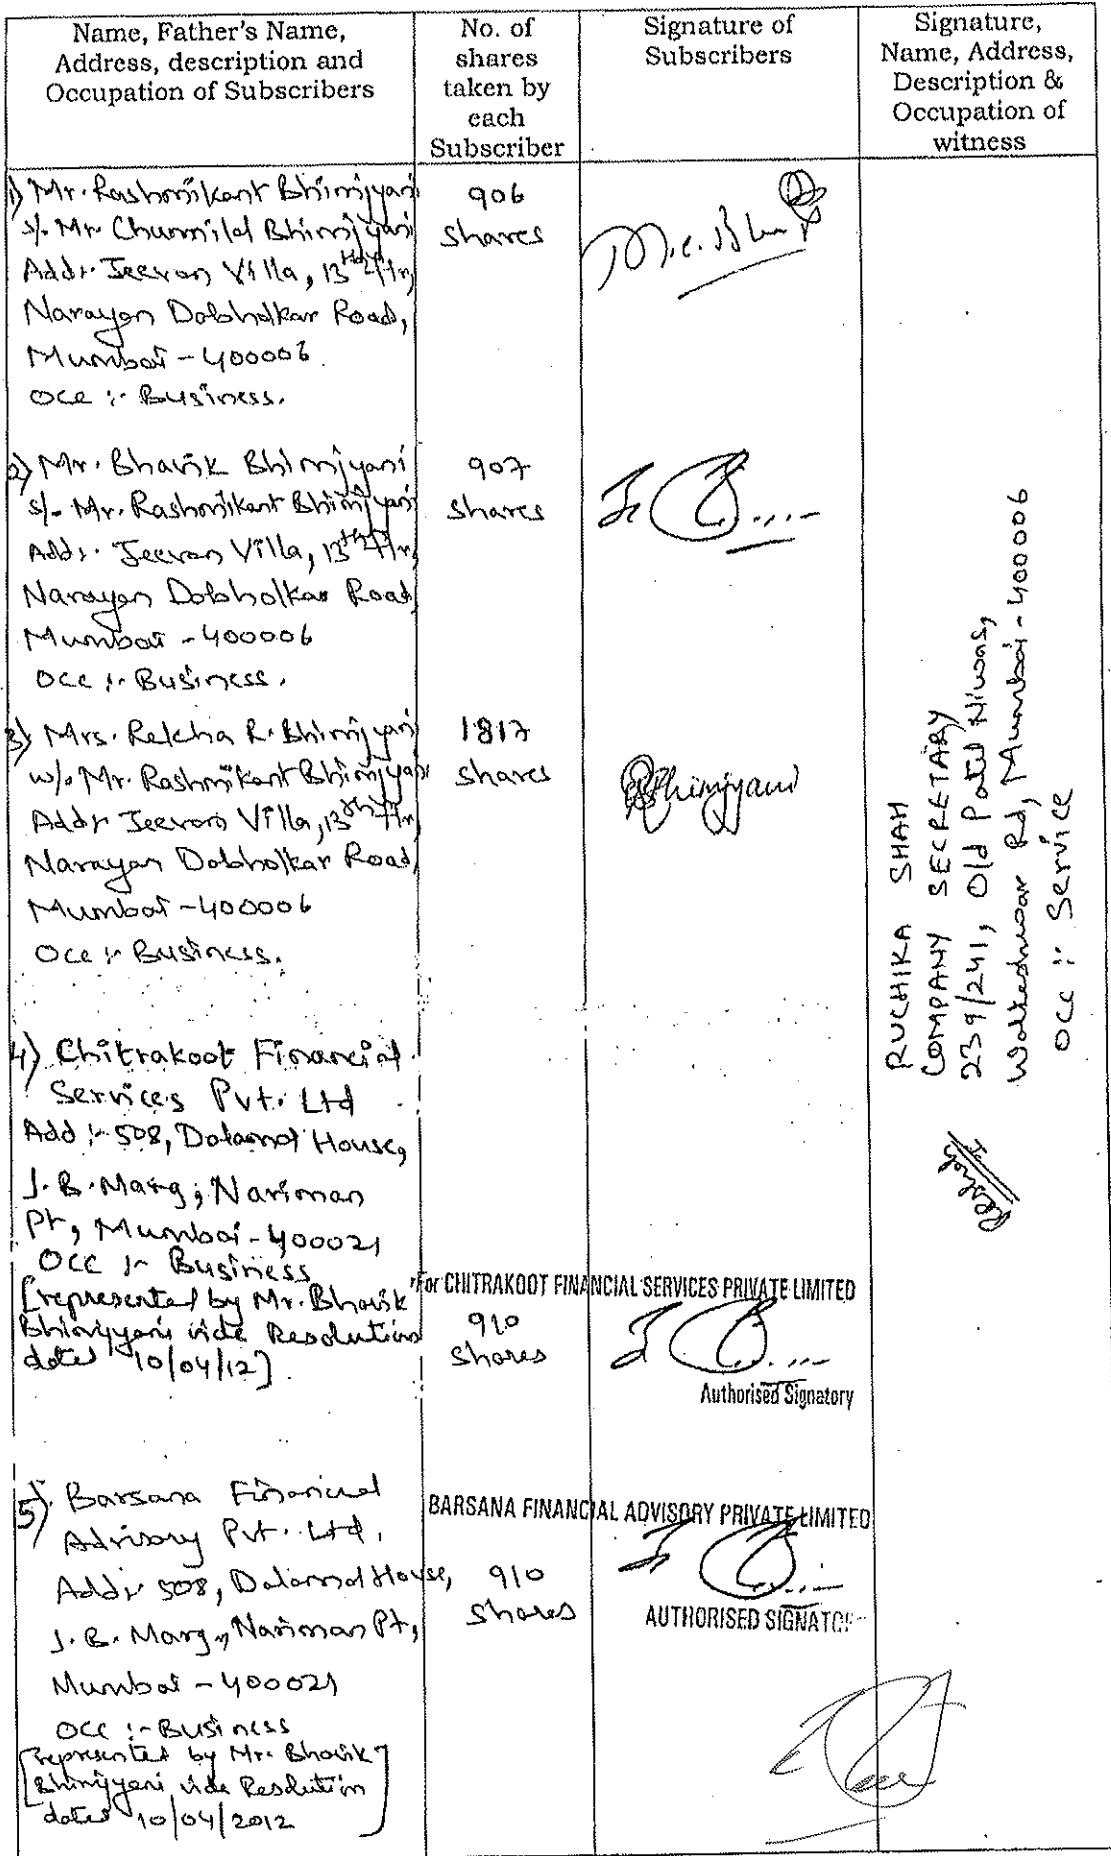 Name, Father's Name,
Address, description and
Occupation of Subscribers
No. of
shares
taken by
each
Subscriber
Signature of
Subscribers
Signature,
Name, Address,
Description &
Occupation of
witness
1) Mr. Rashmikant Bhimjyani
s/. Mr. Chunnilal Bhimjyani
Addr. Jeevan Villa, 13th Flr,
Narayan Dabholkar Road,
Mumbai - 400006.
Occ :- Business.
906
shares
2) Mr. Bhavik Bhimjyani
s/- Mr. Rashmikant Bhimjyani
Addr. Jeevan Villa, 13th Flr,
Narayan Dabholkar Road
Mumbai - 400006
Occ :- Business.
907
shares
3) Mrs. Rekha R. Bhimjyani
w/o Mr. Rashmikant Bhimjyani
Addr Jeevan Villa, 13th Flr,
Narayan Dabholkar Road,
Mumbai - 400006
Occ :- Business.
1817
shares
RBhimjyani
4) Chitrakoot Financial
Services Pvt. Ltd
Add :- 508, Dalamal House,
J.B. Marg, Nariman
Pt, Mumbai - 400021
Occ :- Business
[represented by Mr. Bhavik
Bhimjyani vide Resolution
dated 10/04/12]
910
shares
For CHITRAKOOT FINANCIAL SERVICES PRIVATE LIMITED
Authorised Signatory
5) Barsana Financial
Advisory Pvt. Ltd.
Addr 508, Dalamal House,
J.B. Marg, Nariman Pt,
Mumbai - 400021
Occ :- Business
[represented by Mr. Bhavik
Bhimjyani vide Resolution
dated 10/04/2012]
910
shares
BARSANA FINANCIAL ADVISORY PRIVATE LIMITED
AUTHORISED SIGNATOR
RUCHIKA SHAH
COMPANY SECRETARY
239/241, Old Patil Niwas,
Walkeshwar Rd, Mumbai - 400006
Occ :- Service